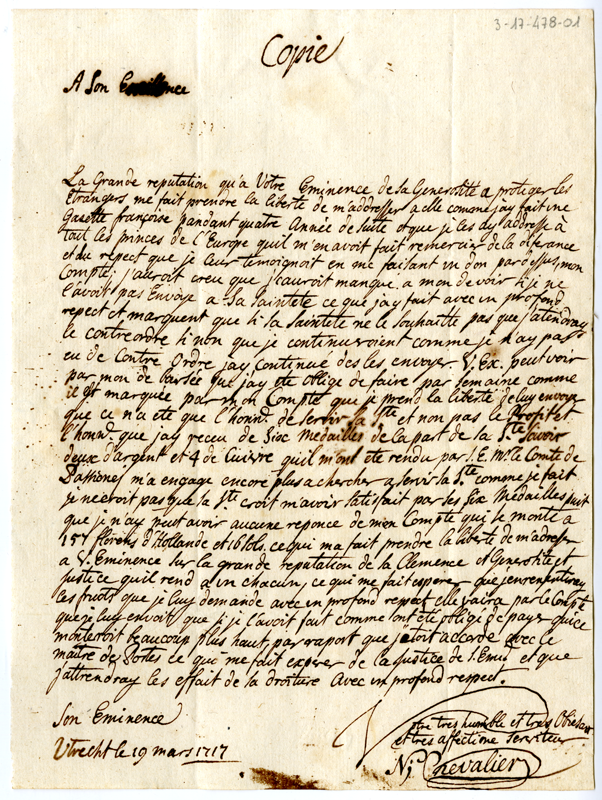 3-17-478-01
Copie
A Son
La Grande reputation qu'a Votre Eminence de sa Generosité a proteger les
Etrangers, me fait prendre la liberté de m'addresser a elle comme jay fait une
Gazette françoise pandant quatre Année de Suite et que je les ay addressé à
tout les princes de l'Europe quil m'en avoit fait remercier de la diferance
et du repect que je leur temoignoit en me faisant un don par dessus, mon
Compte; j'auroit creu que j'auroit manque a mon devoir si je ne
l'avoit pas Envoÿe a Sa Sainteté ce que jay fait avec un profond
repect et marquent que si sa Sainteté ne le souhaitté pas que j'atendray
le contreordre si non que je continueroient comme je n'ay pas
eu de Contre Ordre jay continué des les envoyer V. Ex. peut voir
par mon de barsée que jay été obligé de faire par semaine comme
il est marquée par mon Compte que je prend la liberté de luy envoyer
que ce n'a été que l'honn. de servir sa Ste et non pas le Profit et
l'honn. que jay receu de Six Medailles de la part de sa Ste Savoir
deux d'argent et 4 de Cuivre quil m'ont été rendu par S. E. Mr. le Comte de
Passionei m'a engagé encore plus a chercher a servir sa Ste comme je fait
je ne croit pas que sa Ste croit m'avoir satisfait par ses Six Medailles
que je n'ay peut avoir aucune reponce de mon Compte qui se monte a
157 florens d'Hollande et 16 sols. ce qui ma fait prendre la liberté de m'adresser
a V. Eminence sur la grande reputation de la Clemence et Generosité et
justice quil rend a un chacun, ce qui me fait esperer que jen
les fruits que je luy demande avec un profond repect elle vaira par le Compte
que je luy envoit que si je l'avoit fait comme l'ont été obligé de payer quice
monteroit beaucoup plus haut, par raport que j'étoit accordé avec le
maitre des Postes ce que me fait experer de la justice de S. Emin. et que
j'attrendray les effait de sa droiture avec un profond respect.
Son Eminence
Votre tres humble et tres Obeissant
et tres affectioné Serviteur
Utrecht le 19 mars 1717
N. Chevalier